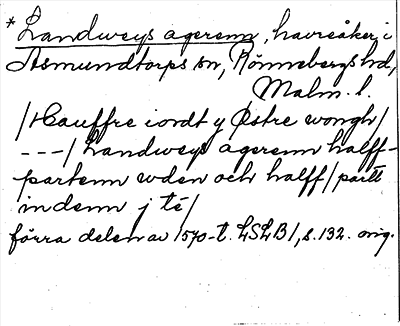 *Landweys agerenn, havreåker i
Asmundtorps sn, Rönnebergs hd,
Malm. l.
/Hauffre iordt y Østre wongh/
---/ Landweys agerenn halff-
partenn uden och halff/partt
indenn j té/
förra delen av 1570-t. LSLB 1, s. 132. orig.